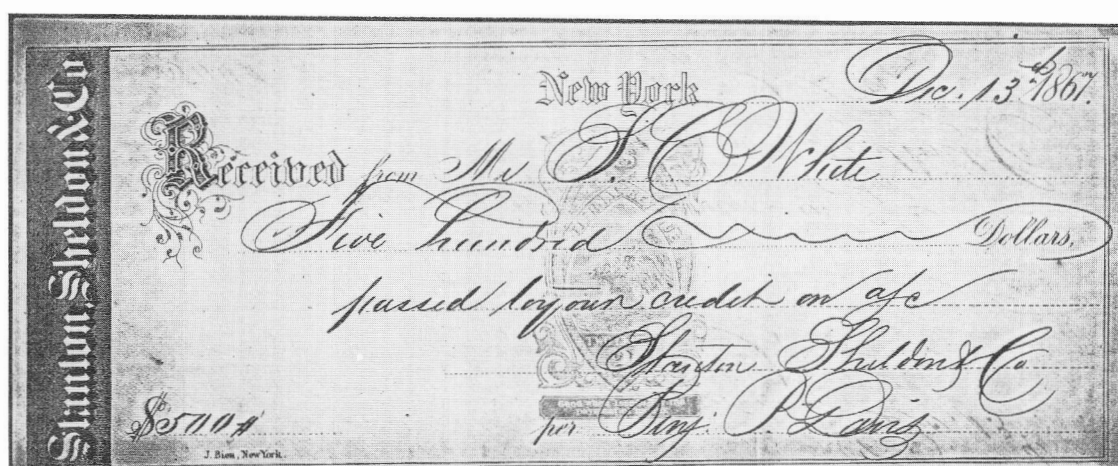 Stanton, Sheldon & Co
New York Dec. 13th 1867.
Received from Mr S. C. White
Five hundred Dollars,
passed to your credit on a/c
Stanton Sheldon & Co
$500# per Benj. P. Davis
J. Bien, New York.